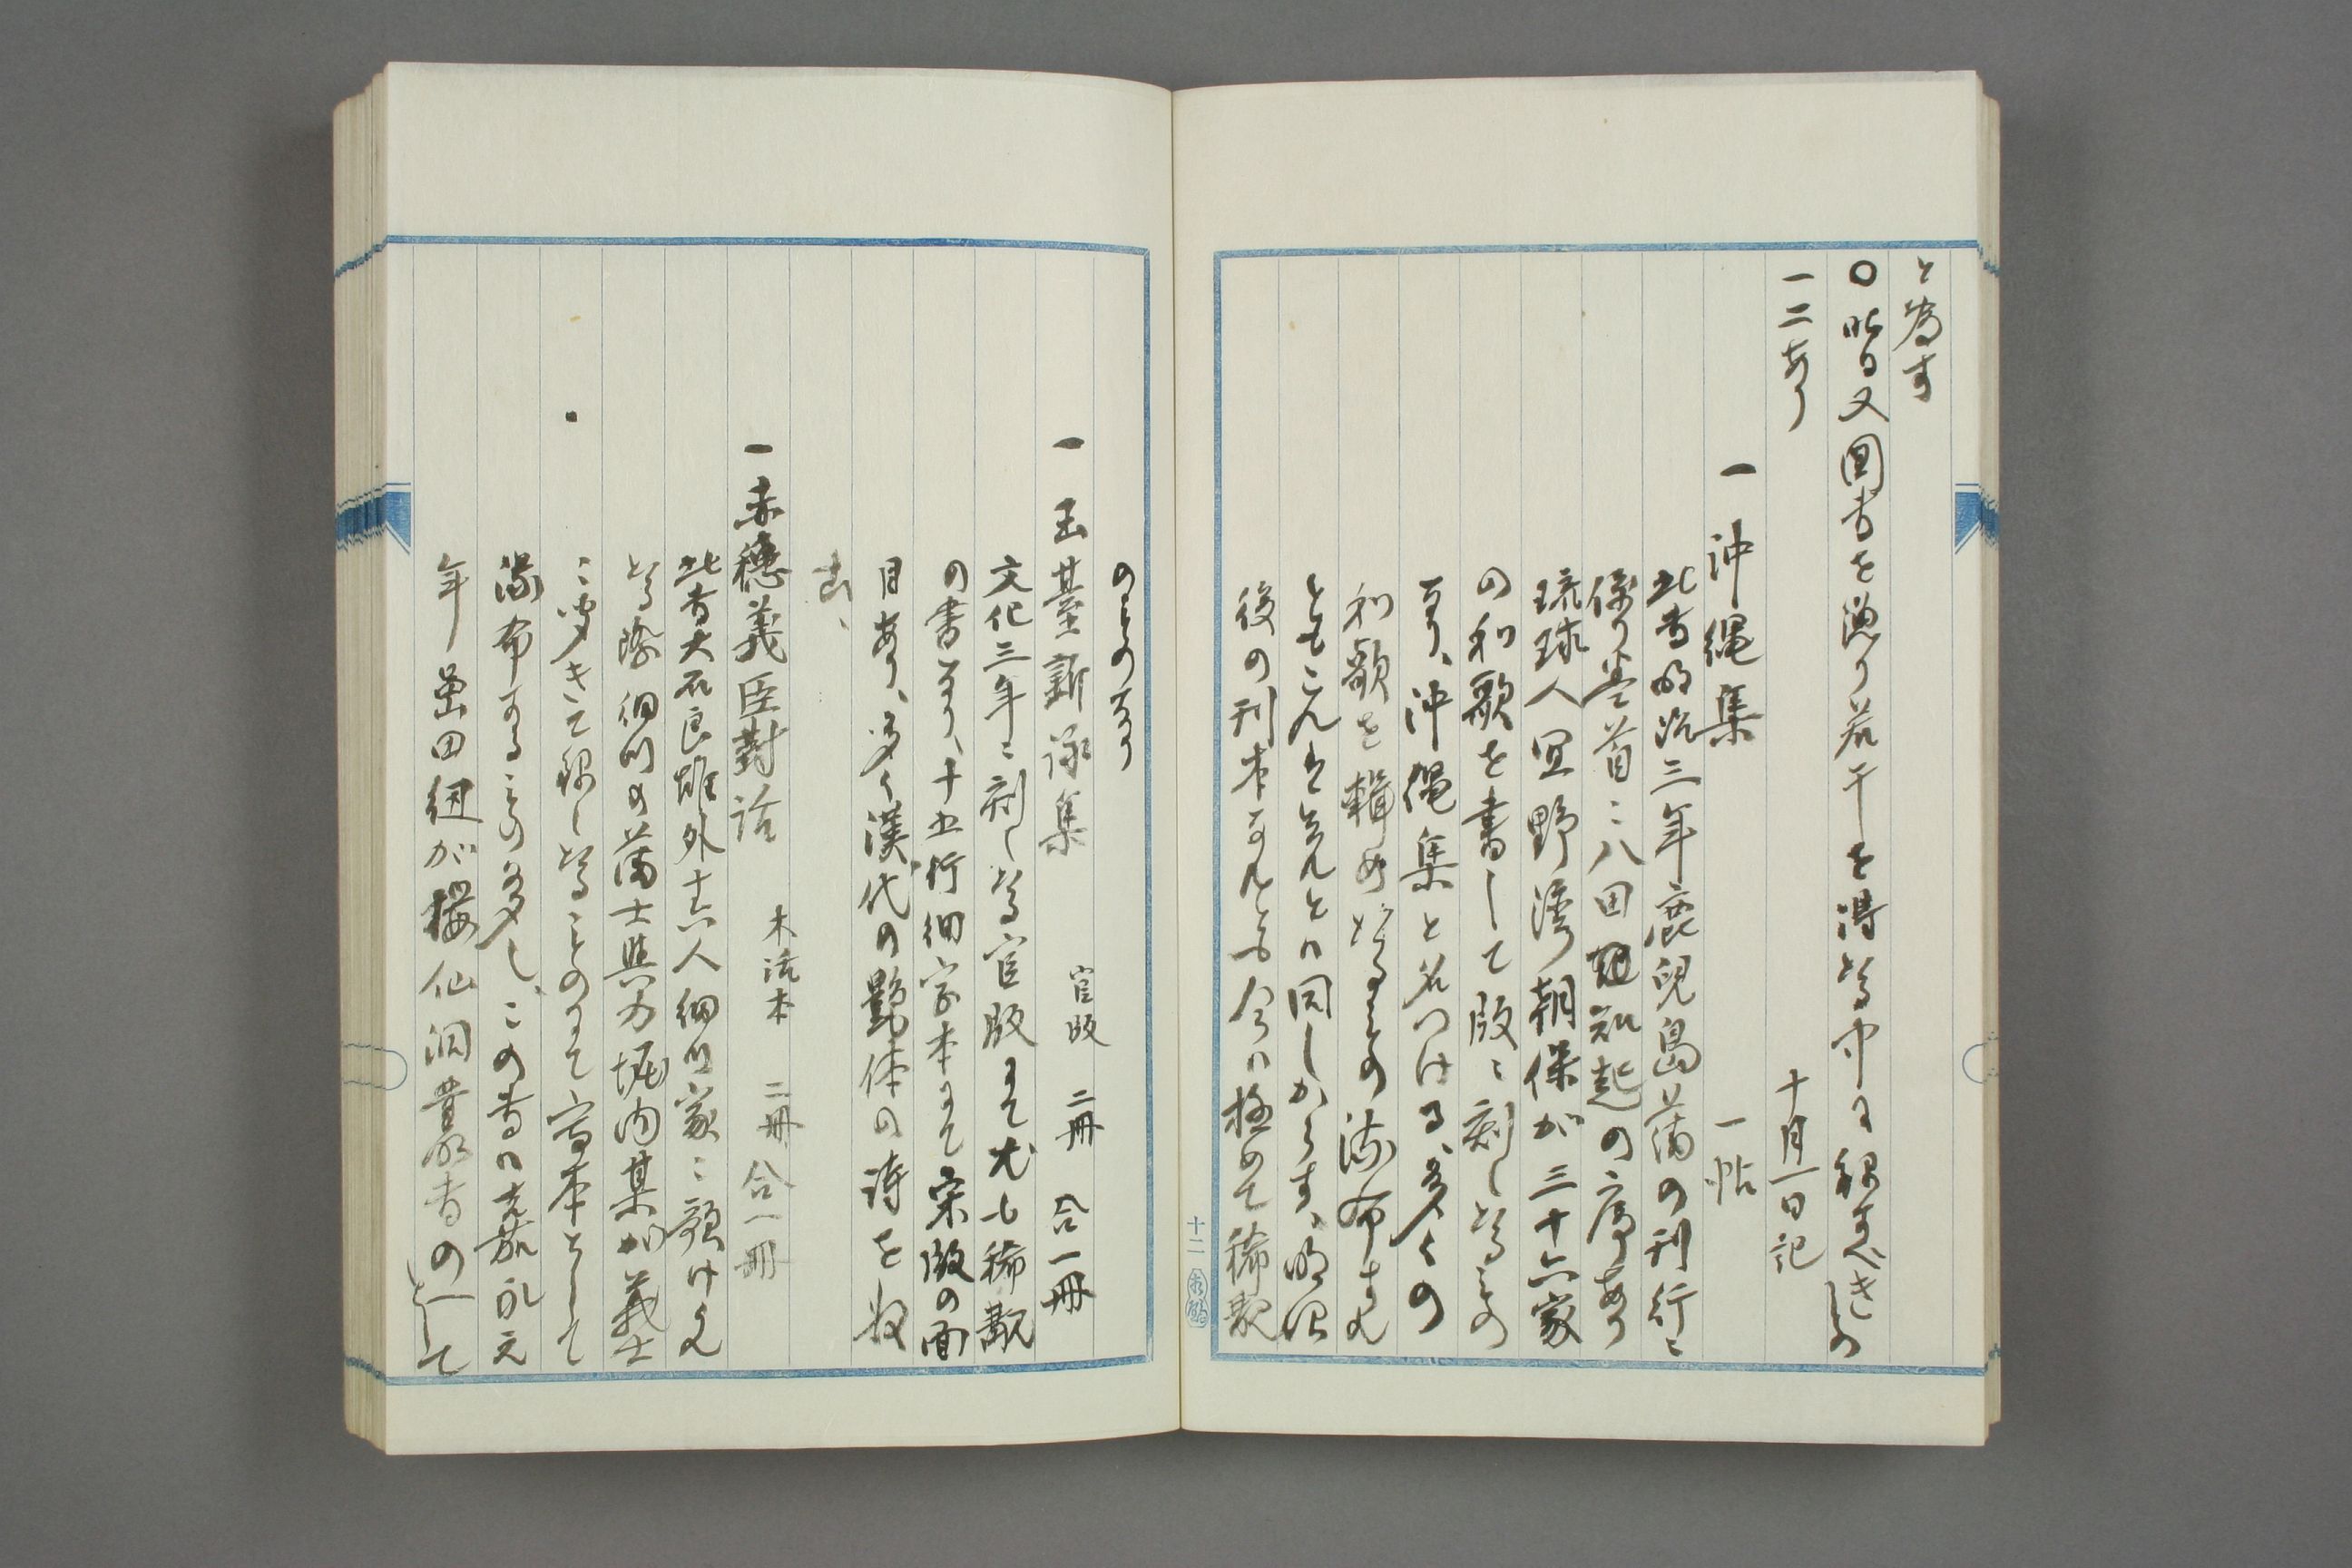 と為す
〇昨日又図書を漁り若干を得たる中に録すべきもの
一二あり
十月一日記
一 沖縄集 一帖
此書明治三年鹿児島藩の刊行に
係り巻首に八田知紀の序あり
琉球人宜野湾朝保が三十六家
の和歌を書して版に刻したるもの
なり、沖縄集と名つける、多くの
和歌を輯めたるもの流布すれ
ともこれはそれとは同しからす、明治
後の刊本なれとも今は極めて稀覯
十二
のものなり
一 玉臺新詠集 官版 二冊 合一冊
文化三年に刻したる官版にて尤も稀覯
の書なり、十五行細字本にて宋版の面
目あり、多く漢代の艶体の詩を収
む、
一 赤穂義臣對話 木活本 二冊 合一冊
此書大石良雄外十六人細川家に預けられ
たる際細川の藩士與力堀内某が義士
に聞きて録したるものにて写本として
流布するもの多し、この書は嘉永元
年 田紐が櫻仙洞叢書の一として